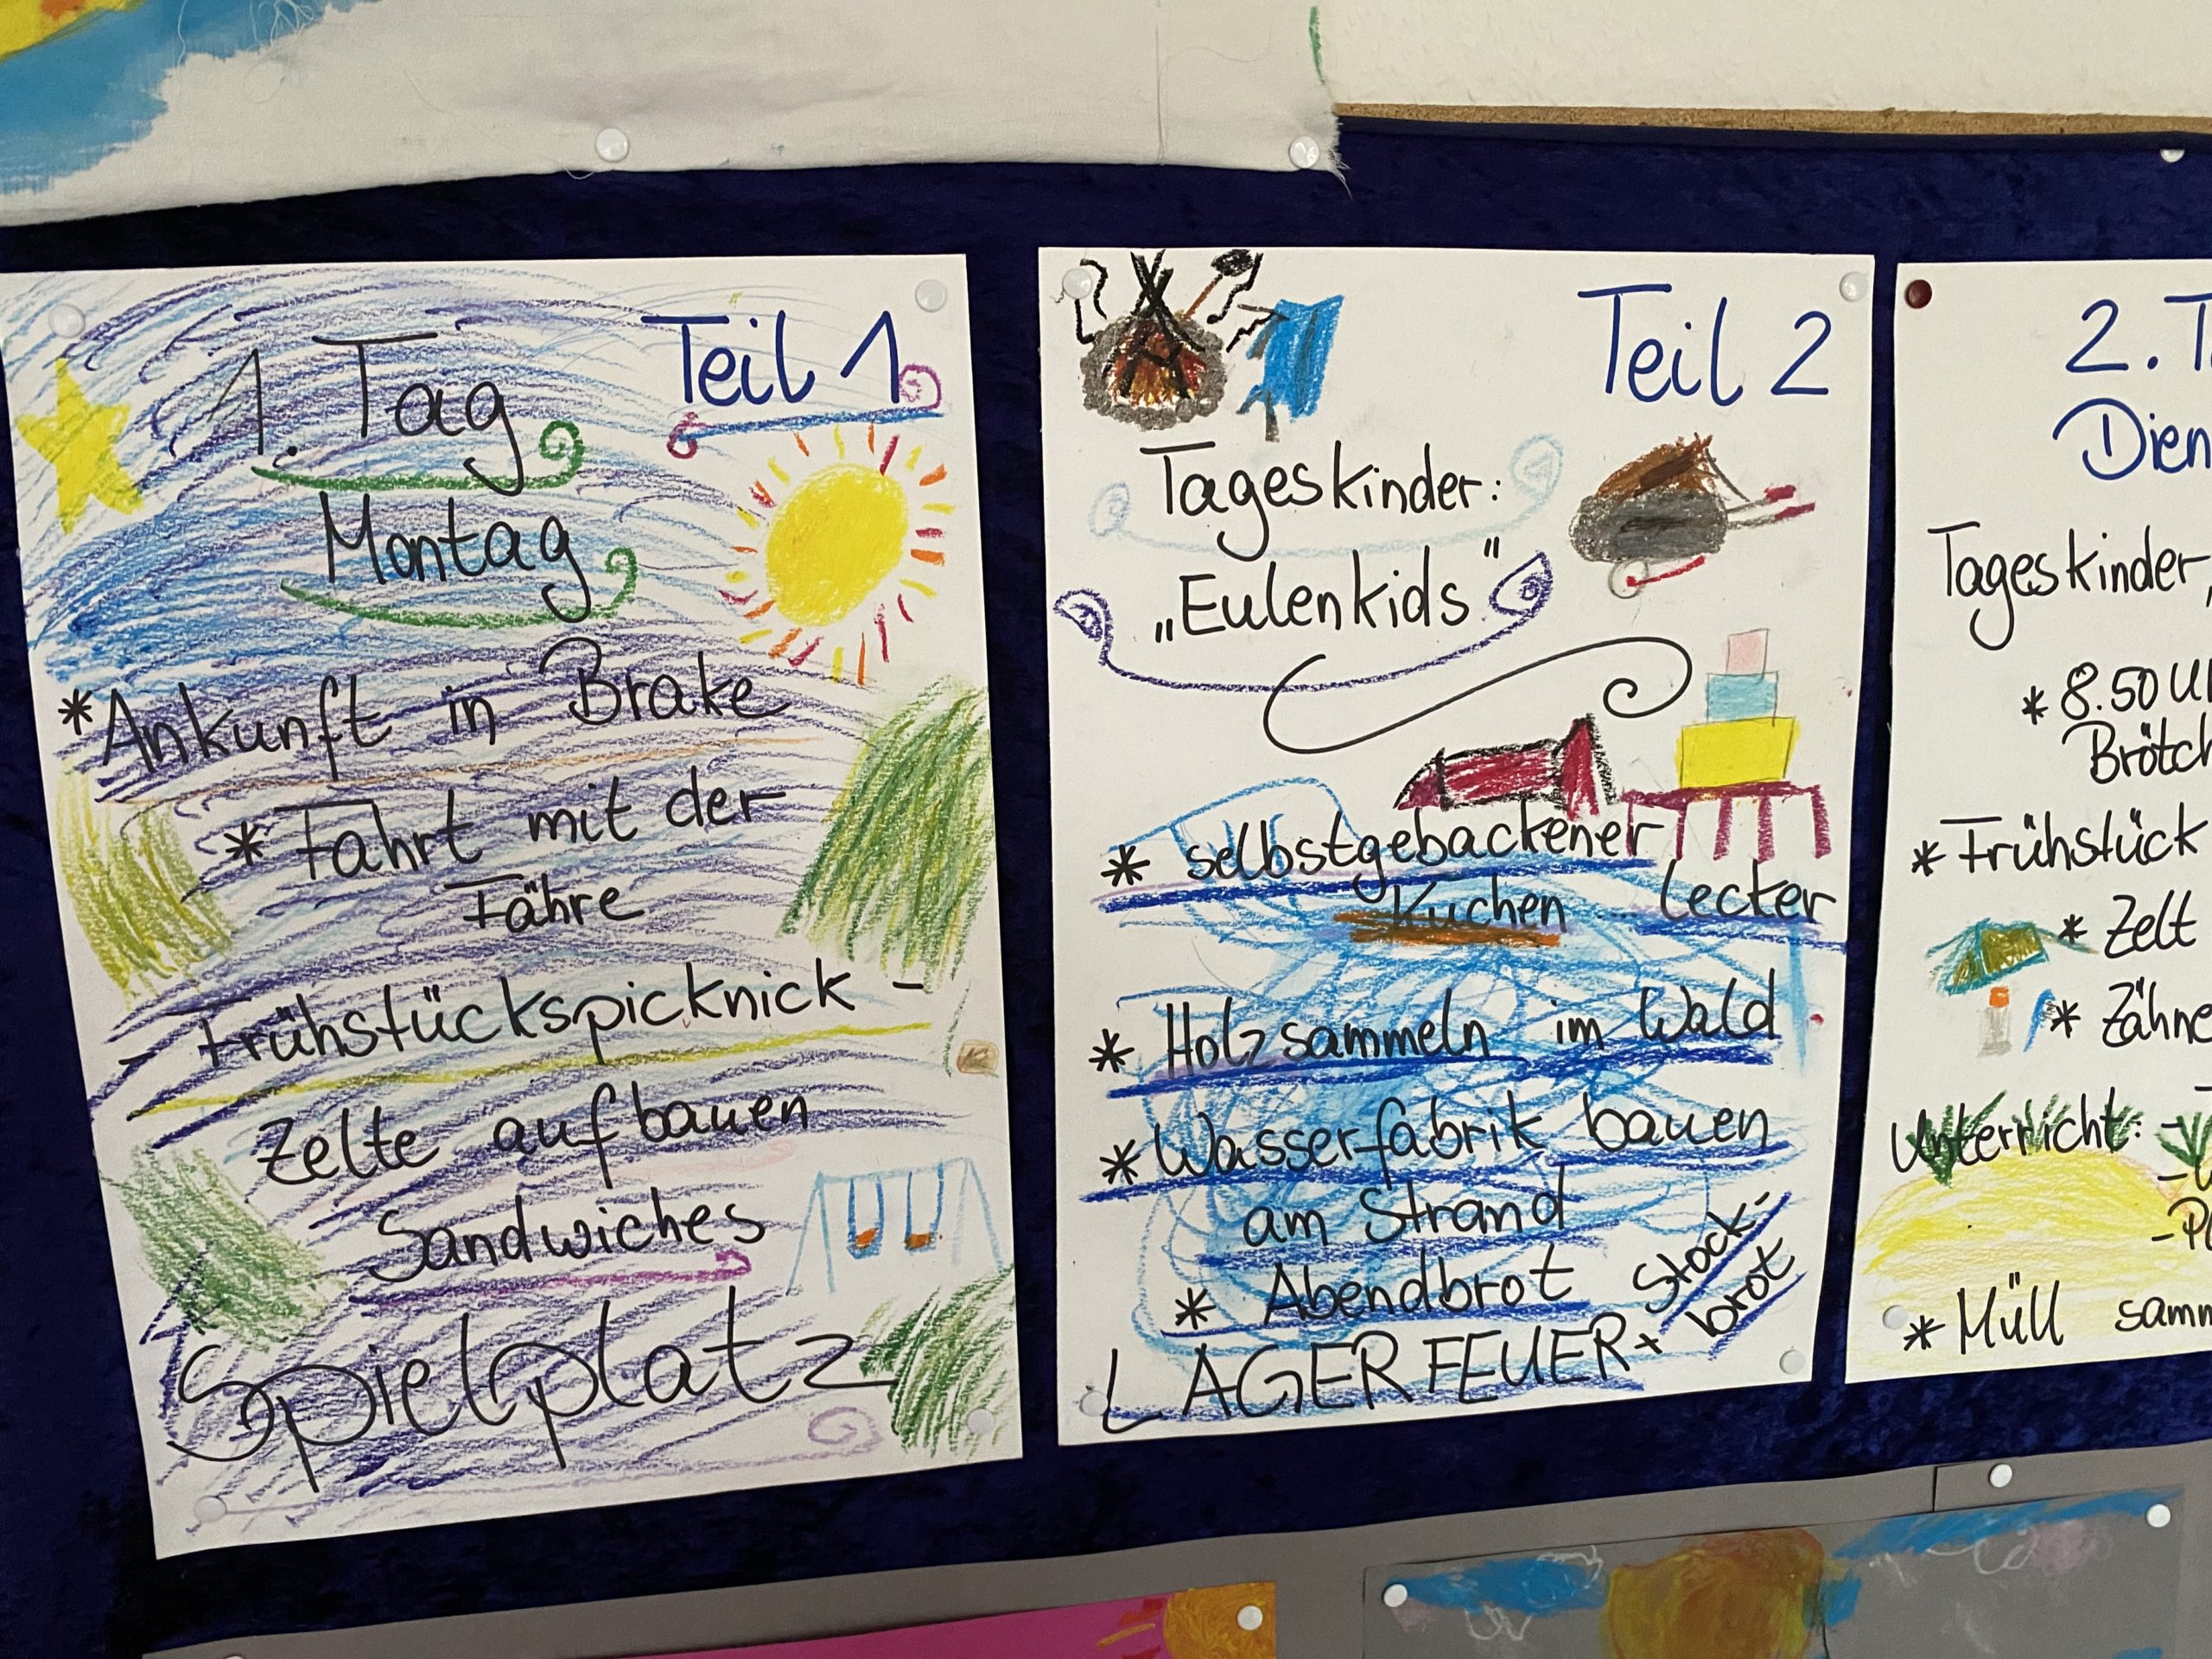 1. Tag
Teil 1
Montag
*Ankunft in Brake
* Fahrt mit der
Fähre
- Frühstückspicknick -
Zelte aufbauen
Sandwiches
Spielplatz
Teil 2
Tageskinder:
„Eulenkids"
* selbstgebackener
Kuchen ... lecker
* Holz sammeln im Wald
* Wasserfabrik bauen
am Strand
* Abendbrot
LAGERFEUER + Stock-
brot
2. T
Dien
Tageskinder
* 8.50 Uh
Brötch
* Frühstück
* Zelt
* Zähne
Unterricht: -
* Müll samm